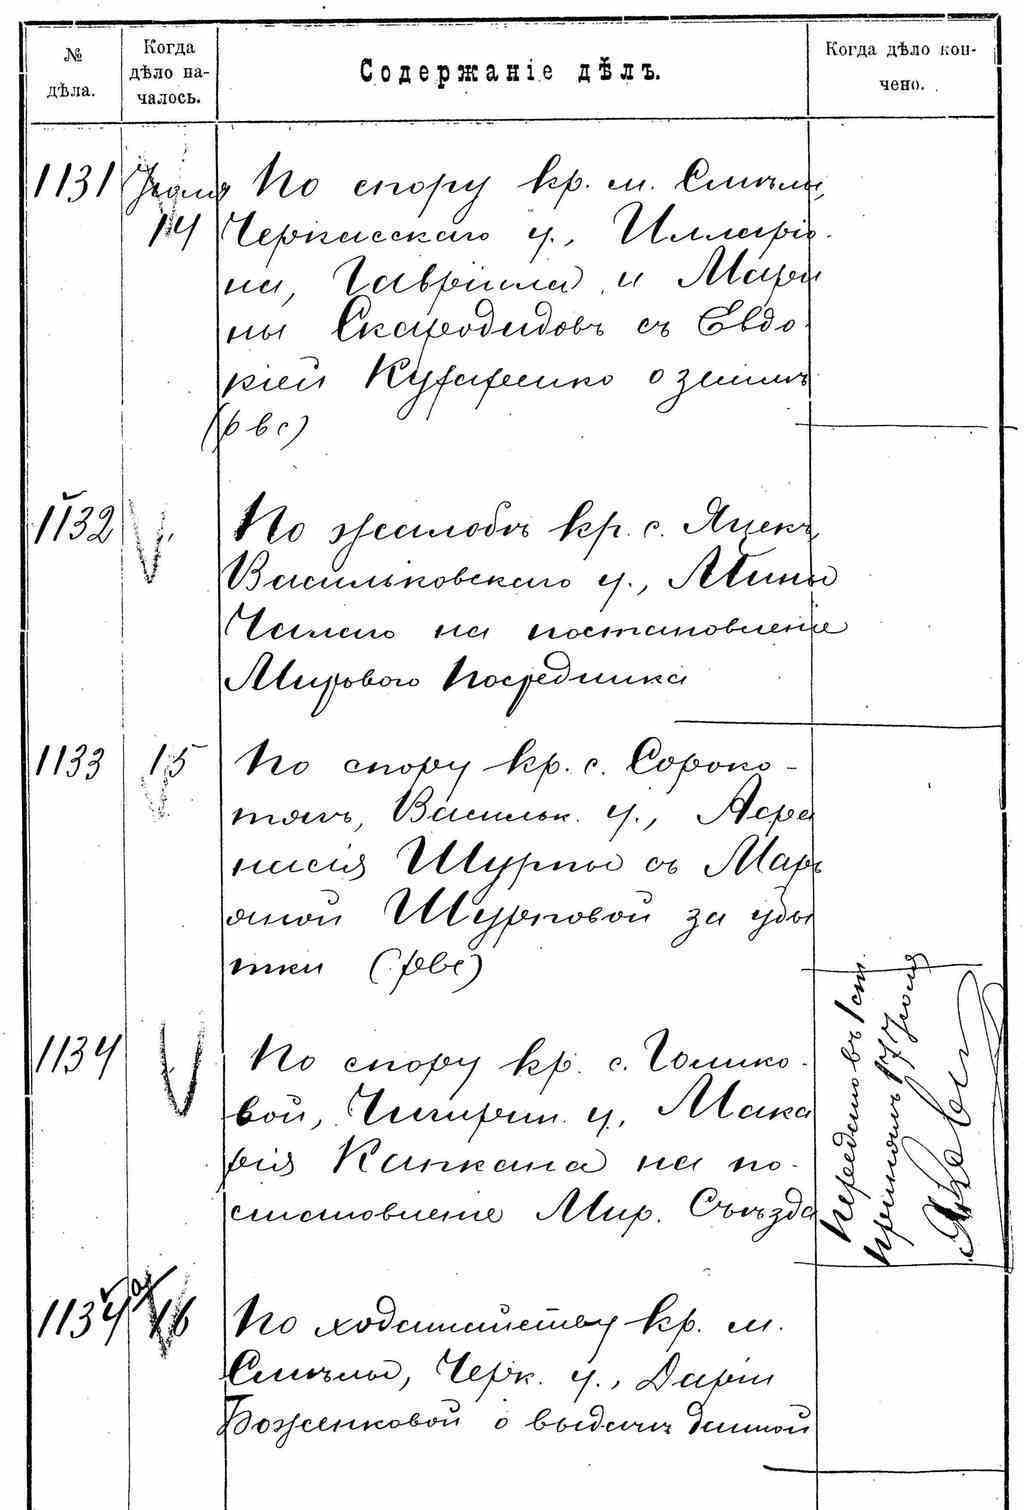 № дѣла.
Когда дѣло началось.
Содержаніе дѣлъ.
Когда дѣло кончено.
1131 Іюля По спору кр. м. Смѣлы,
14 Черкасскаго у., Илларіо-
на, Гавріила и Мари
ны Скародидовъ съ Евдо-
кіей Куцаренко о землѣ
(рвс)
1132 По жалобѣ кр. с. Яцекъ,
Васильковскаго у., Мины
Чалаго на постановленіе
Мирового Посредника
1133 15 По спору кр. с. Сороко-
тягъ, Васильк. у., Афа
насія Шурпы съ Марь
яной Шурповой за убы
тки (рвс)
1134 По спору кр. с. Голико-
вой, Чигирин. у. Мака
рія Капкана на по-
становленіе Мир. Съѣзда
Передано въ 1 ст.
Принялъ 17 Іюля
1134а 16 По ходатайству кр. м.
Смѣлы, Черк. у., Даріи
Боженковой о выдачѣ данной